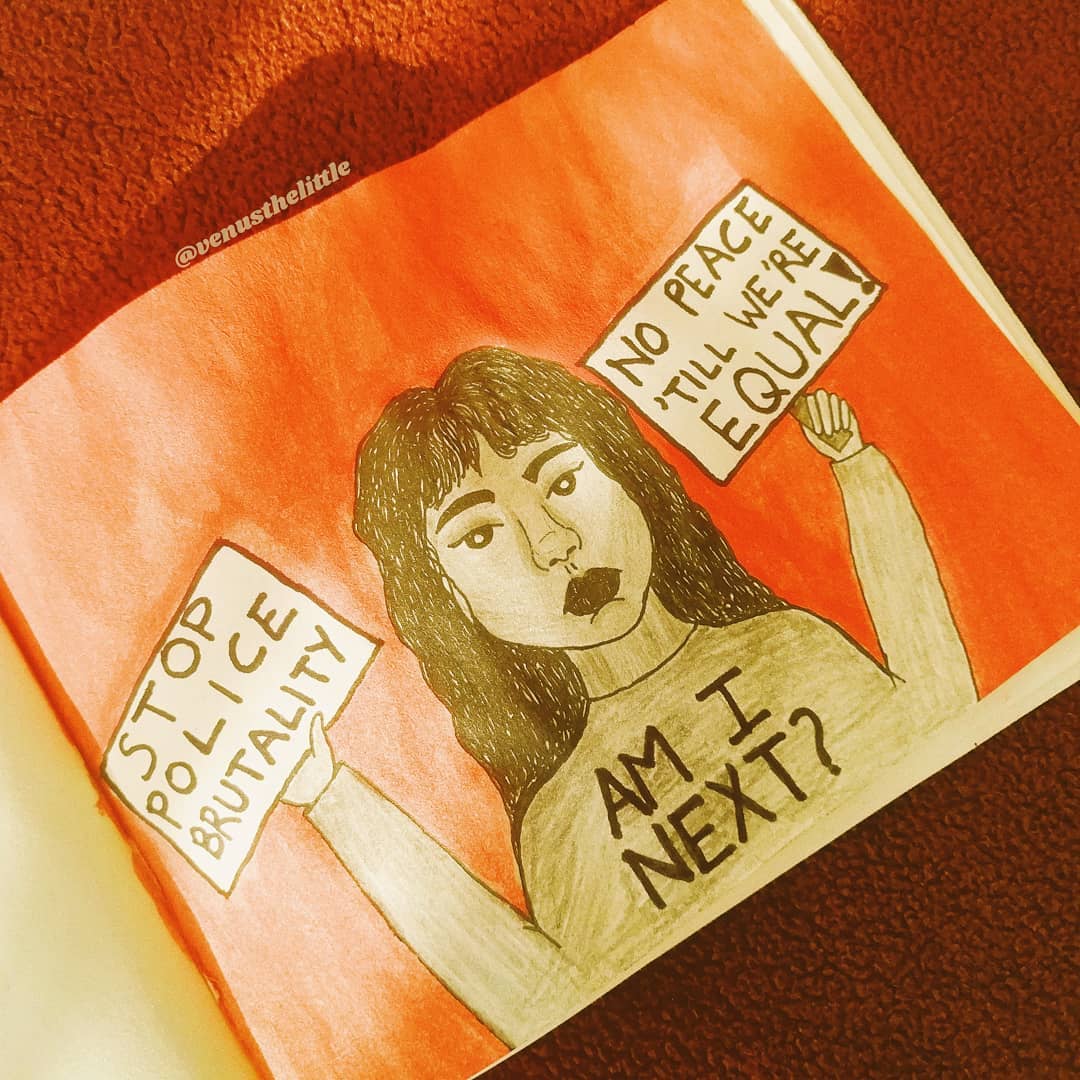 @venusthelittle
NO PEACE
'TILL WE'RE
EQUAL!
STOP
POLICE
BRUTALITY
AM I
NEXT?